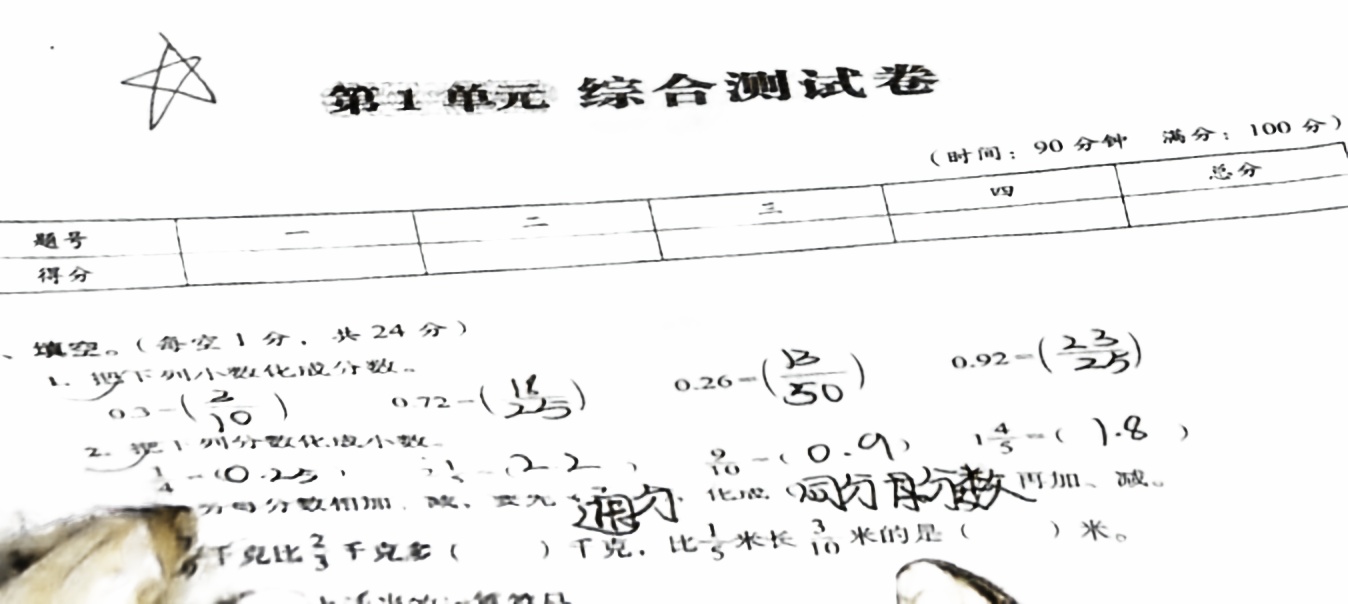 第1单元 综合测试卷
(时间：90分钟 满分：100分)
题号 一 二 三 四 总分
得分
、填空。(每空1分，共24分)
1. 把下列小数化成分数。
0.3=(3/10) 0.72=(18/25) 0.26=(13/50) 0.92=(23/25)
2. 把下列分数化成小数。
1/4=(0.25) (2.2) 9/10=(0.9) 1 4/5=(1.8)
分母分数相加、减，要先(通分)，化成(同分母分数)再加、减。
千克比2/3千克多( )千克，比1/5米长3/10米的是( )米。